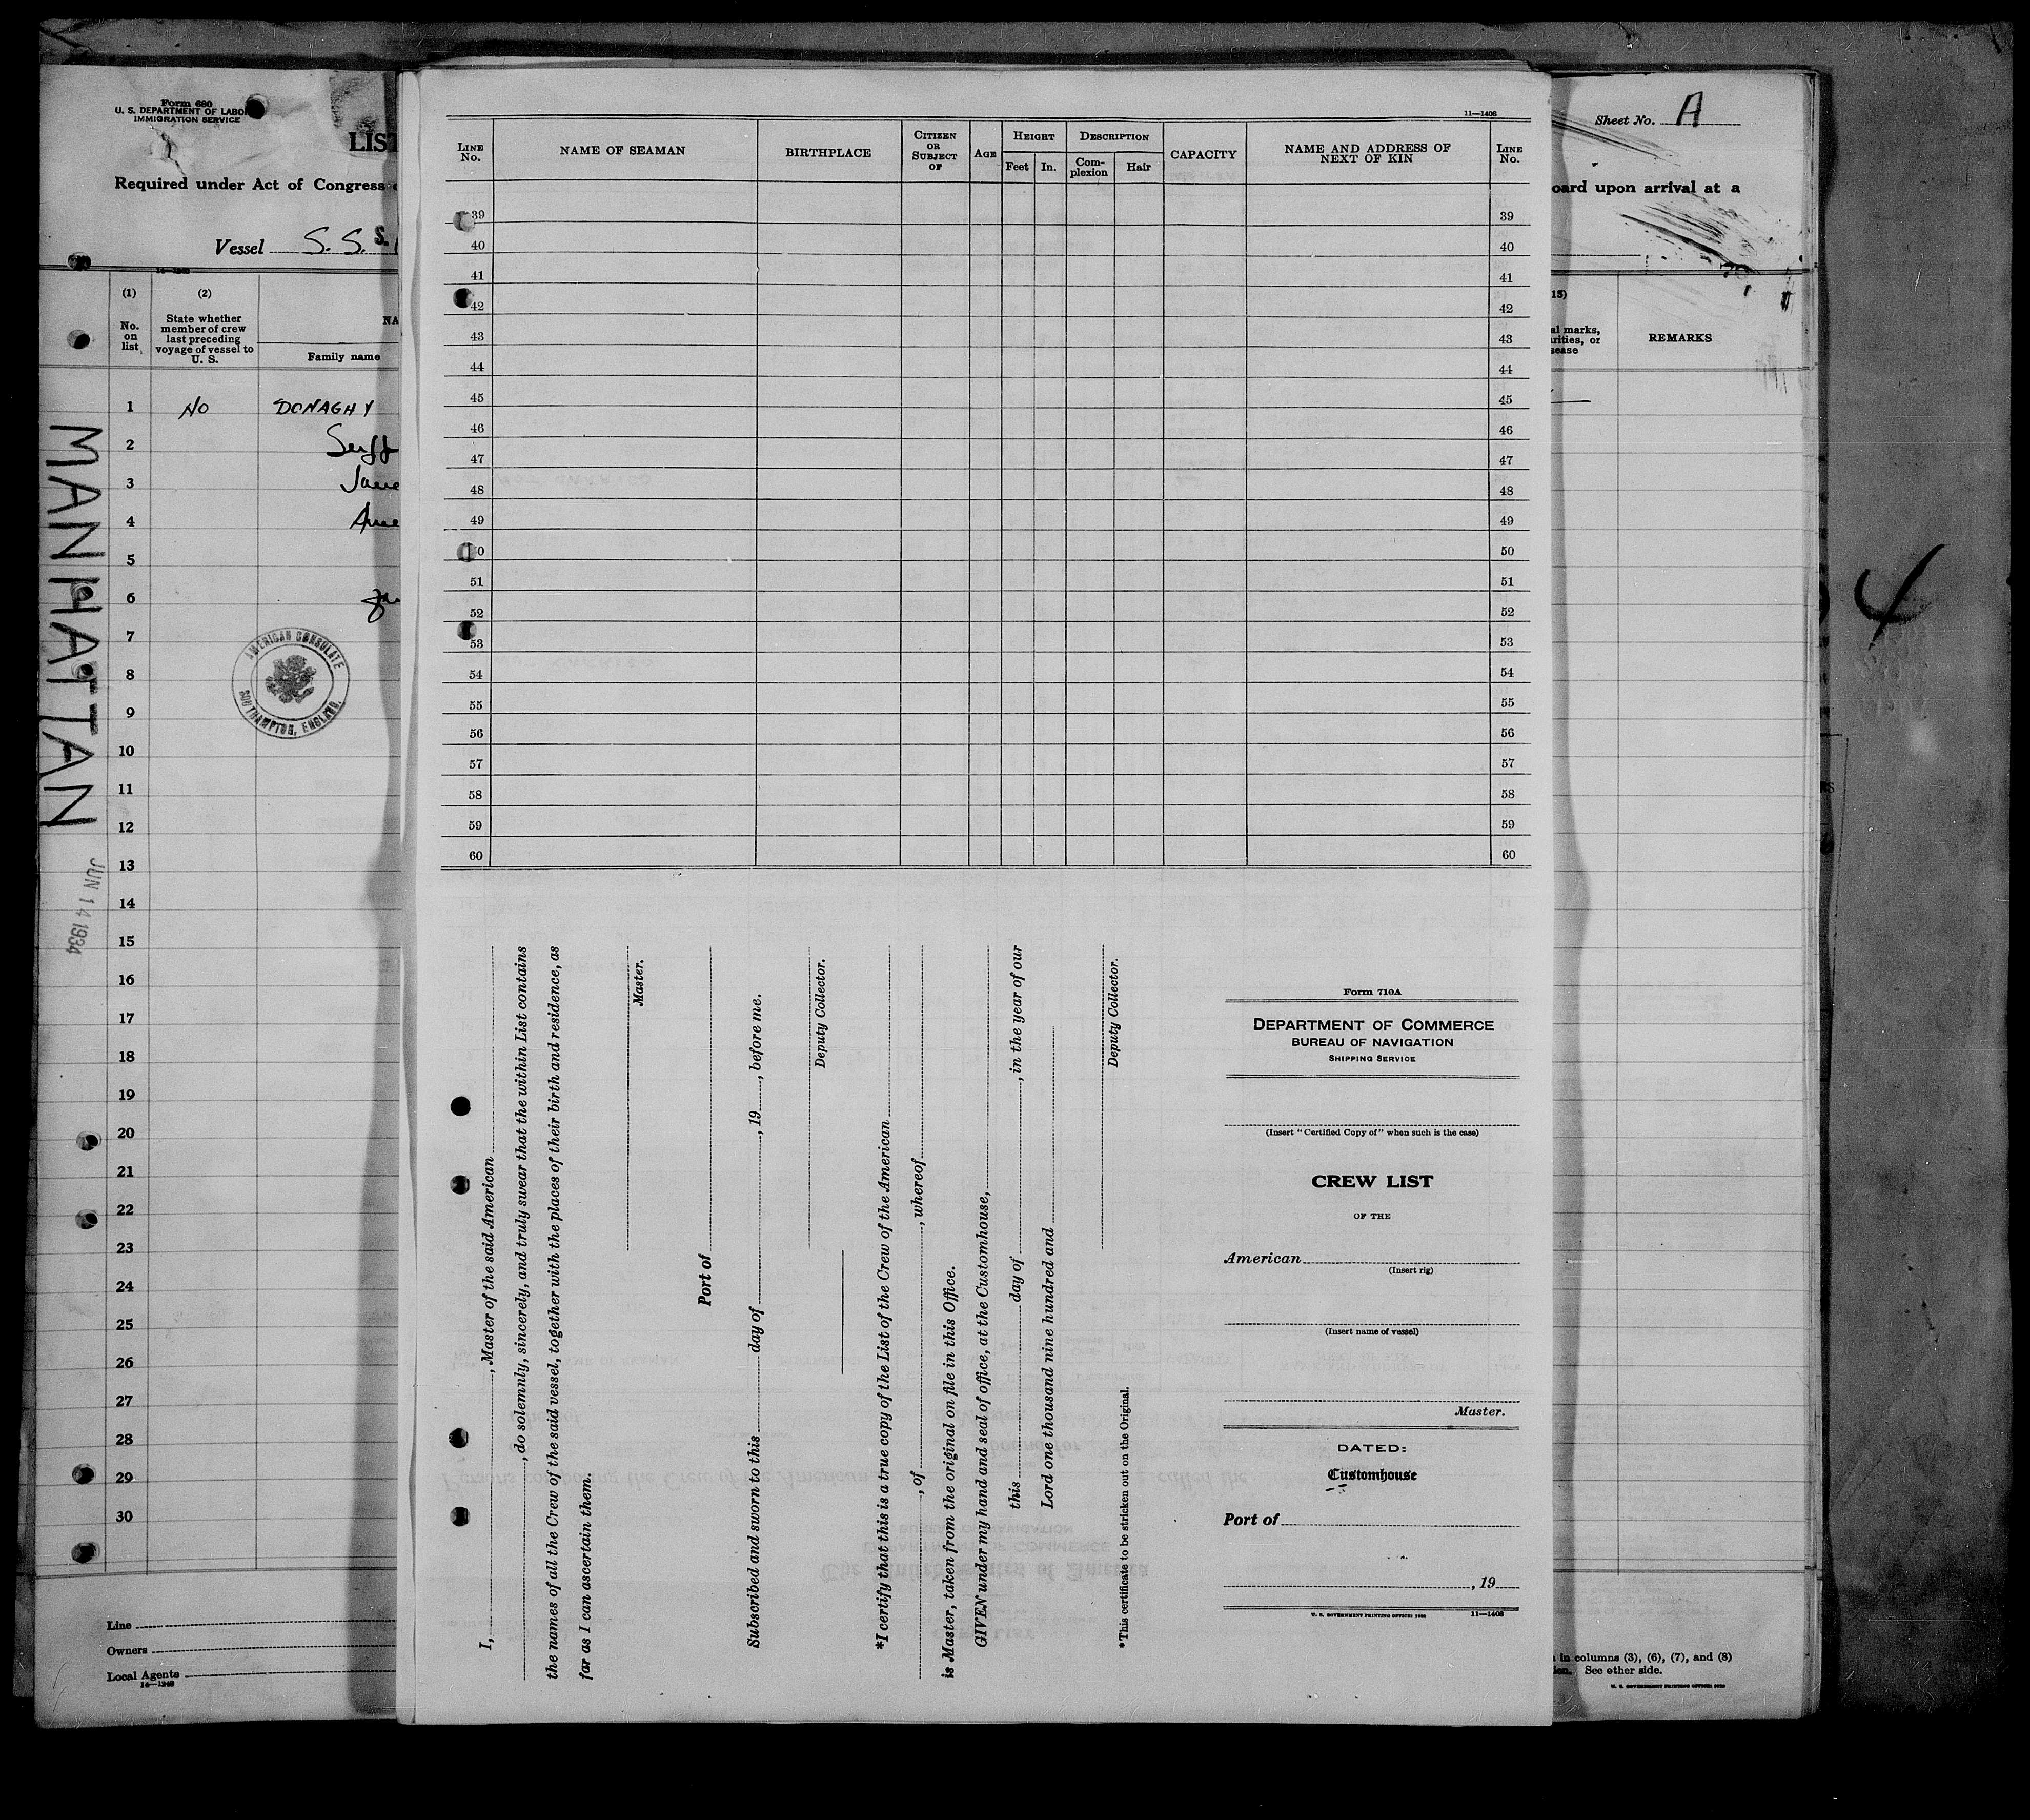 Form 680
U. S. DEPARTMENT OF LABOR
IMMIGRATION SERVICE
LIST
Required under Act of Congress
Vessel S. S. S.
14—1240
(1)
No.
on
list
(2)
State whether
member of crew
last preceding
voyage of vessel to
U. S.
NA
Family name
1 NO DONAGHY
2
3
4
5
6
7
8
9
10
11
12
13
14
15
16
17
18
19
20
21
22
23
24
25
26
27
28
29
30
AMERICAN CONSULATE
SOUTHAMPTON, ENGLAND.
MANHATTAN
JUN 14 1934
Line
Owners
Local Agents
14—1240
11—1408
LINE No. NAME OF SEAMAN BIRTHPLACE CITIZEN OR SUBJECT OF AGE HEIGHT Feet In. DESCRIPTION Complexion Hair CAPACITY NAME AND ADDRESS OF NEXT OF KIN LINE No.
39 39
40 40
41 41
42 42
43 43
44 44
45 45
46 46
47 47
48 48
49 49
50 50
51 51
52 52
53 53
54 54
55 55
56 56
57 57
58 58
59 59
60 60
I, , Master of the said American
, do solemnly, sincerely, and truly swear that the within List contains
the names of all the Crew of the said vessel, together with the places of their birth and residence, as
far as I can ascertain them.
Master.
Port of
Subscribed and sworn to this day of , 19 , before me.
Deputy Collector.
*I certify that this is a true copy of the List of the Crew of the American
, of , whereof
is Master, taken from the original on file in this Office.
GIVEN under my hand and seal of office, at the Customhouse,
this day of , in the year of our
Lord one thousand nine hundred and
Deputy Collector.
*This certificate to be stricken out on the Original.
Form 710A
DEPARTMENT OF COMMERCE
BUREAU OF NAVIGATION
SHIPPING SERVICE
(Insert "Certified Copy of" when such is the case)
CREW LIST
OF THE
American
(Insert rig)
(Insert name of vessel)
Master.
DATED:
Customhouse
Port of
, 19
11—1408
Sheet No. A
oard upon arrival at a
15)
al marks,
rities, or
sease
REMARKS
4
in columns (3), (6), (7), and (8)
See other side.